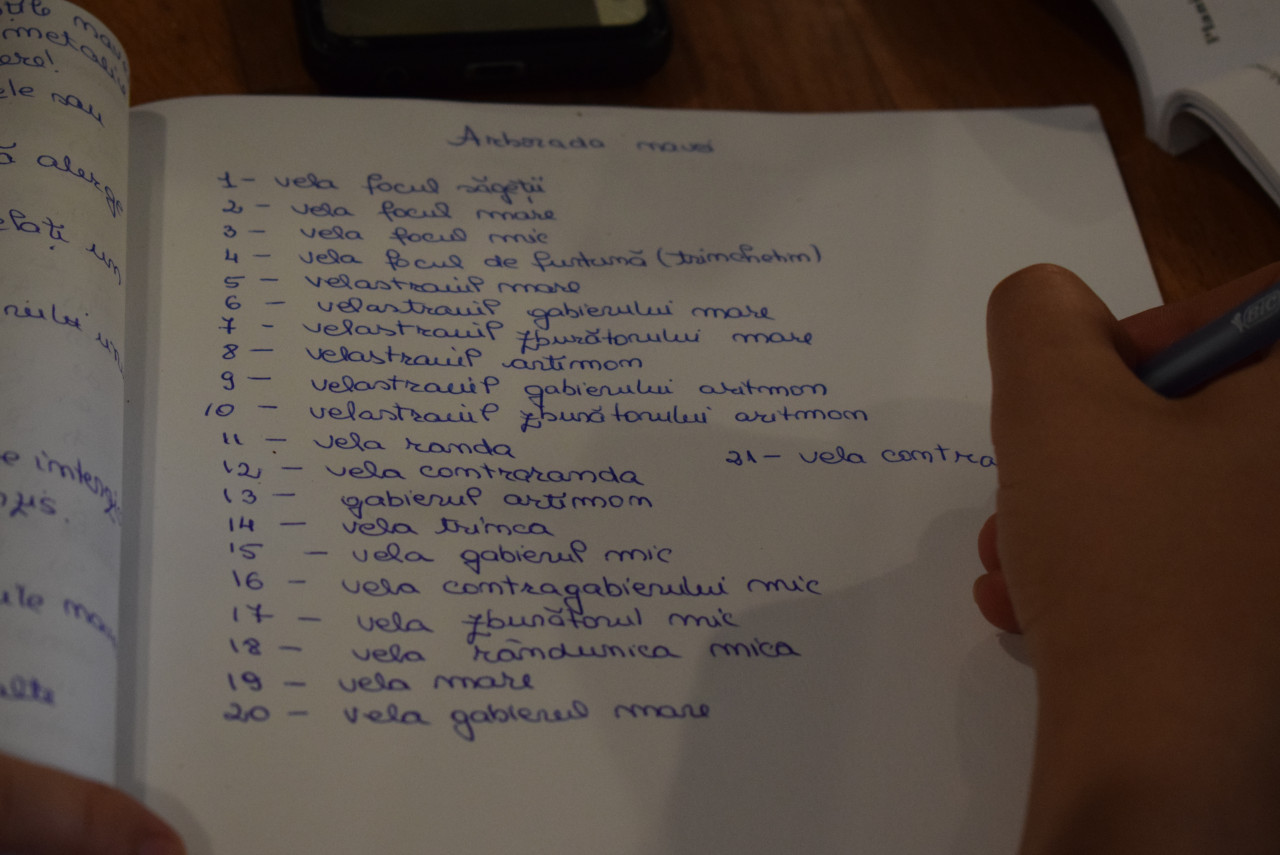 ere!
ele sau
ă alerge
elați un
Arborada navei
1 - vela focul săgeții
2 - vela focul mare
3 - vela focul mic
4 - vela focul de furtună (trinchetin)
5 - velastraiul mare
6 - velastraiul gabierului mare
7 - velastraiul zburătorului mare
8 - velastraiul artimon
9 - velastraiul gabierului aritmon
10 - velastraiul zburătorului aritmon
11 - vela randa
12 - vela contraranda
13 - gabierul artimon
14 - vela trinca
15 - vela gabierul mic
16 - vela contragabierului mic
17 - vela zburătorul mic
18 - vela rândunica mica
19 - vela mare
20 - vela gabierul mare
21 - vela contra
BIC